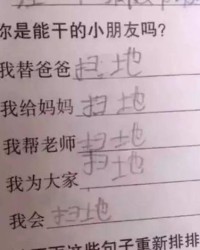 你是能干的小朋友吗?
我替爸爸扫地
我给妈妈扫地
我帮老师扫地
我为大家扫地
我会扫地
这些句子重新排排